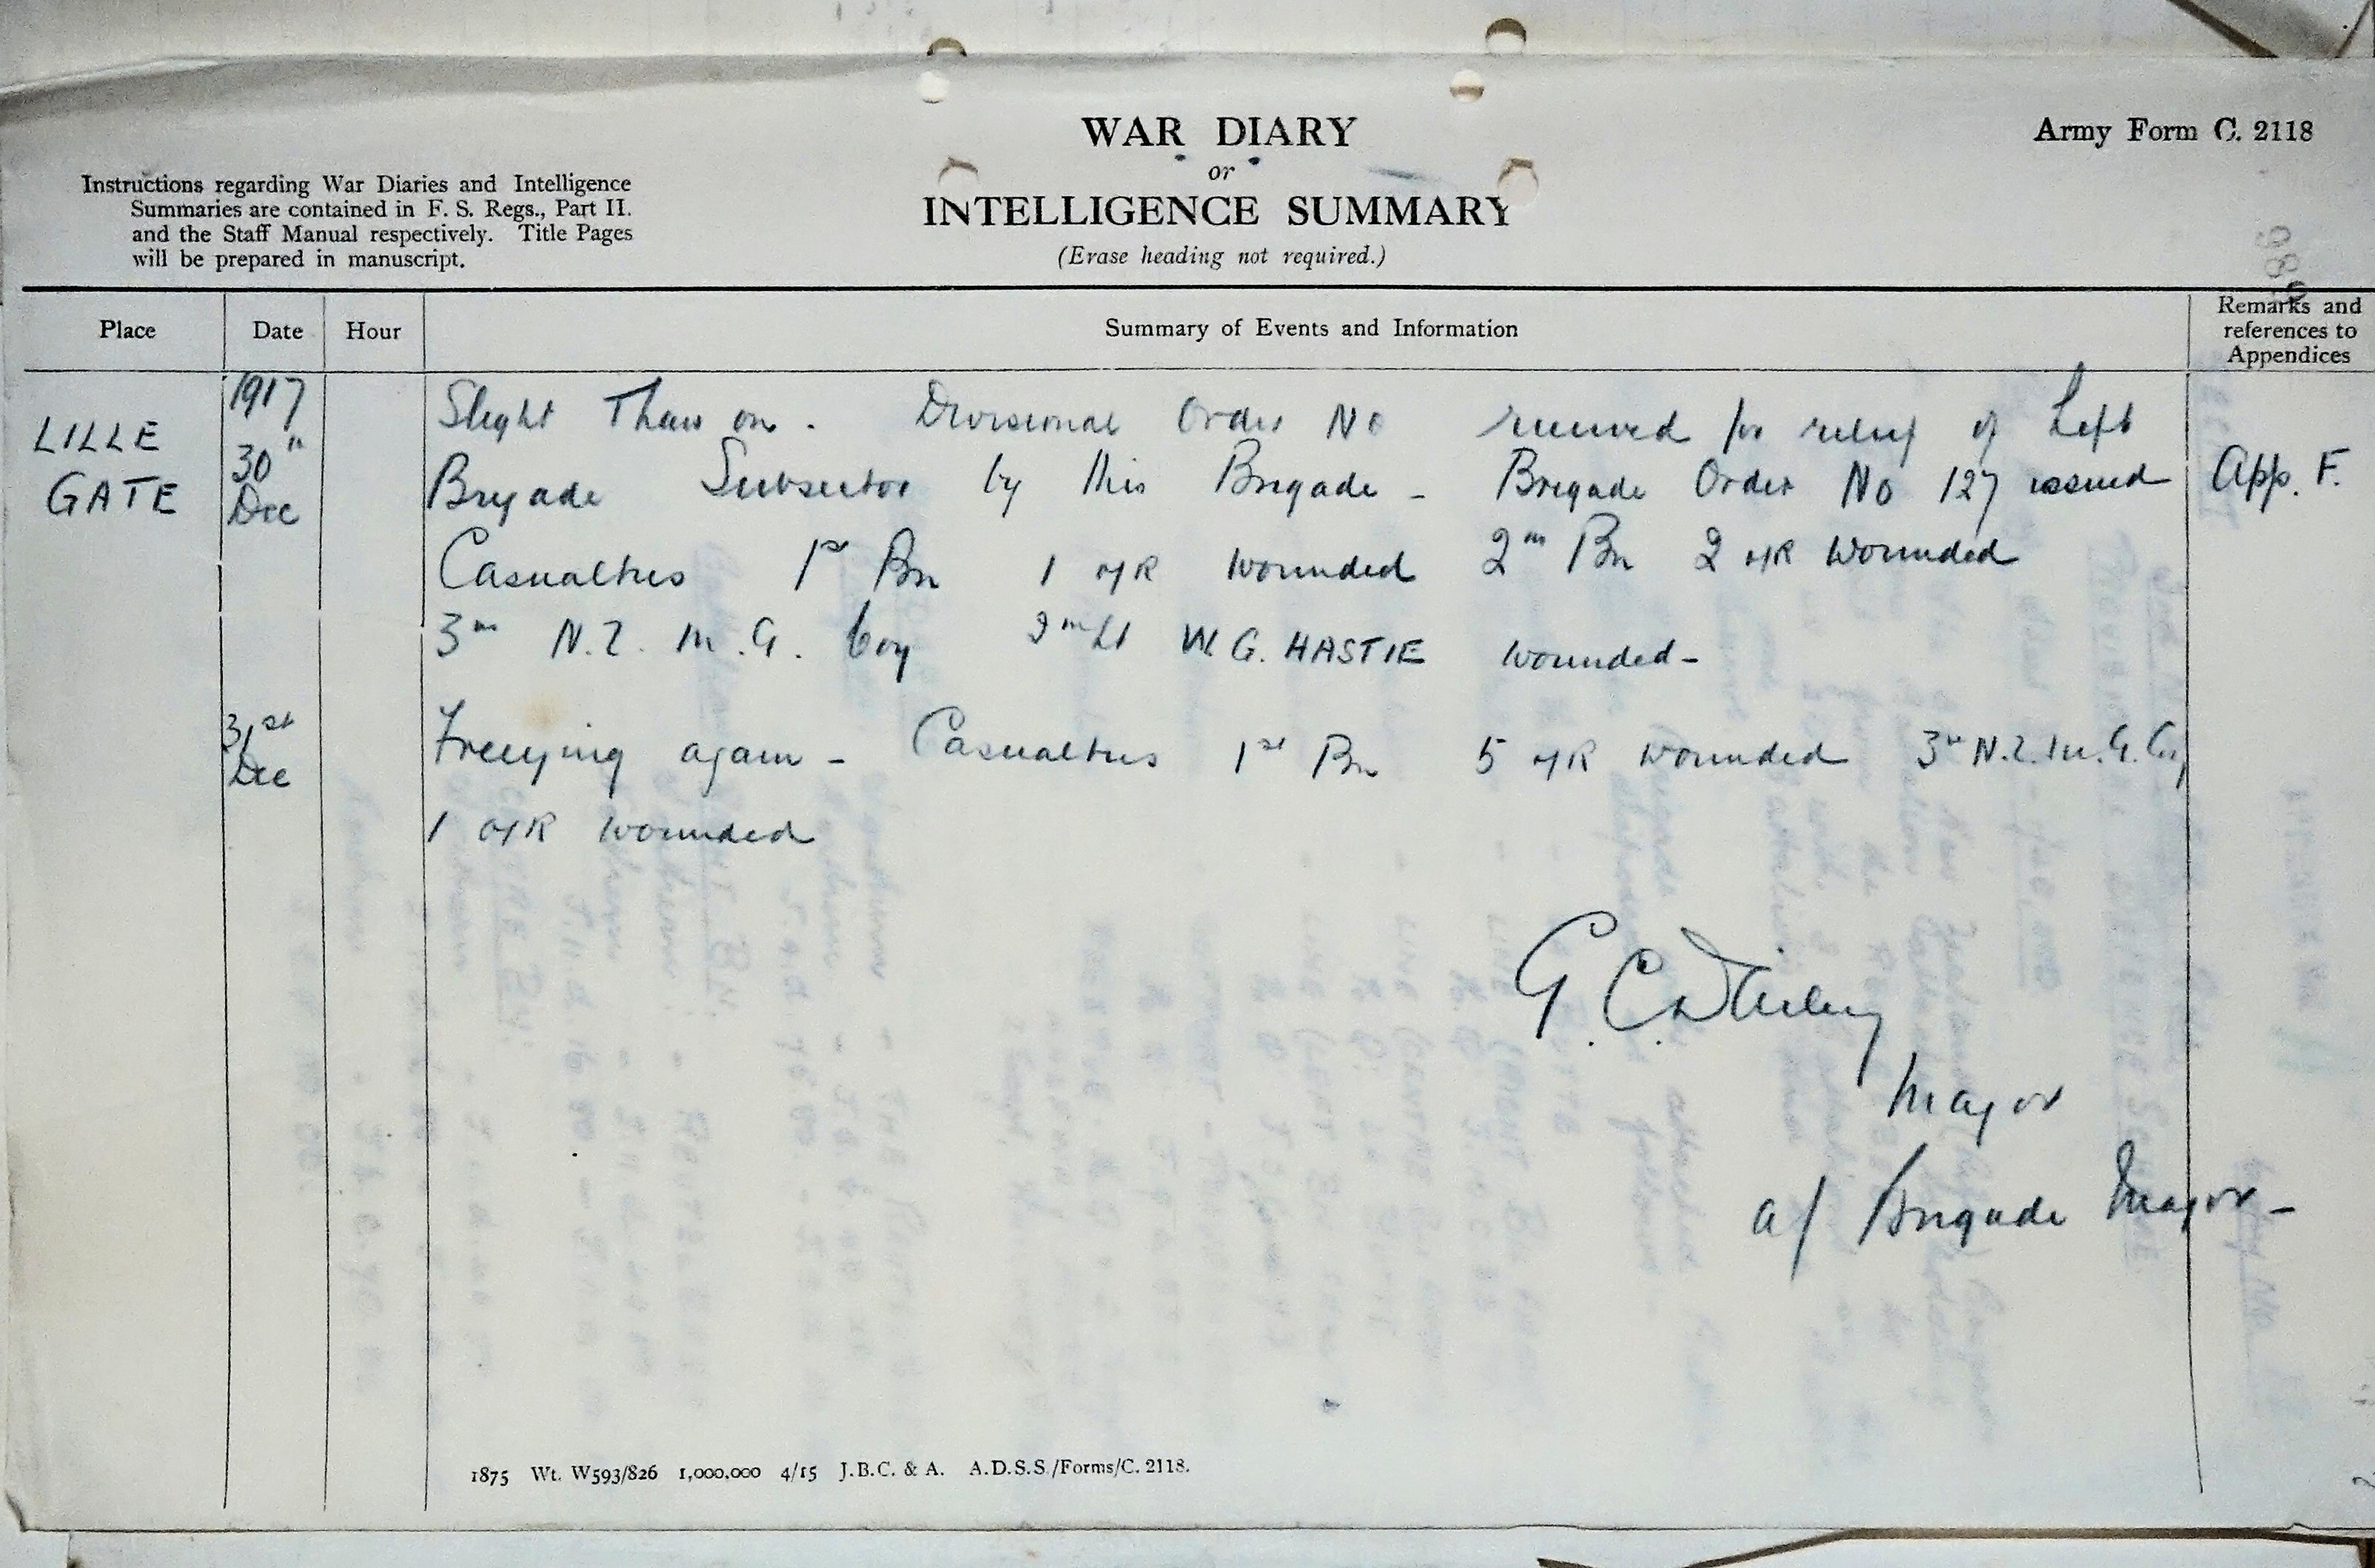 WAR DIARY
or
INTELLIGENCE SUMMARY
(Erase heading not required.)
Army Form C. 2118
Instructions regarding War Diaries and Intelligence
Summaries are contained in F. S. Regs., Part II.
and the Staff Manual respectively. Title Pages
will be prepared in manuscript.
Place Date Hour Summary of Events and Information Remarks and references to Appendices
1917
LILLE GATE 30th Dec
Slight Thaw on. Divisional Order No received for relief of Left
Brigade Subsector by this Brigade - Brigade Order No 127 issued App. F.
Casualties 1st Bn 1 O/R wounded 2nd Bn 2 O/R wounded
3rd N.Z. M.G. Coy 2nd Lt W.G. HASTIE wounded -
31st Dec
Freezing again - Casualties 1st Bn 5 O/R wounded 3rd N.Z. M.G. Coy
1 O/R wounded
G. C.
Major
a/ Brigade Major -
1875 Wt. W593/826 1,000,000 4/15 J.B.C. & A. A.D.S.S./Forms/C. 2118.